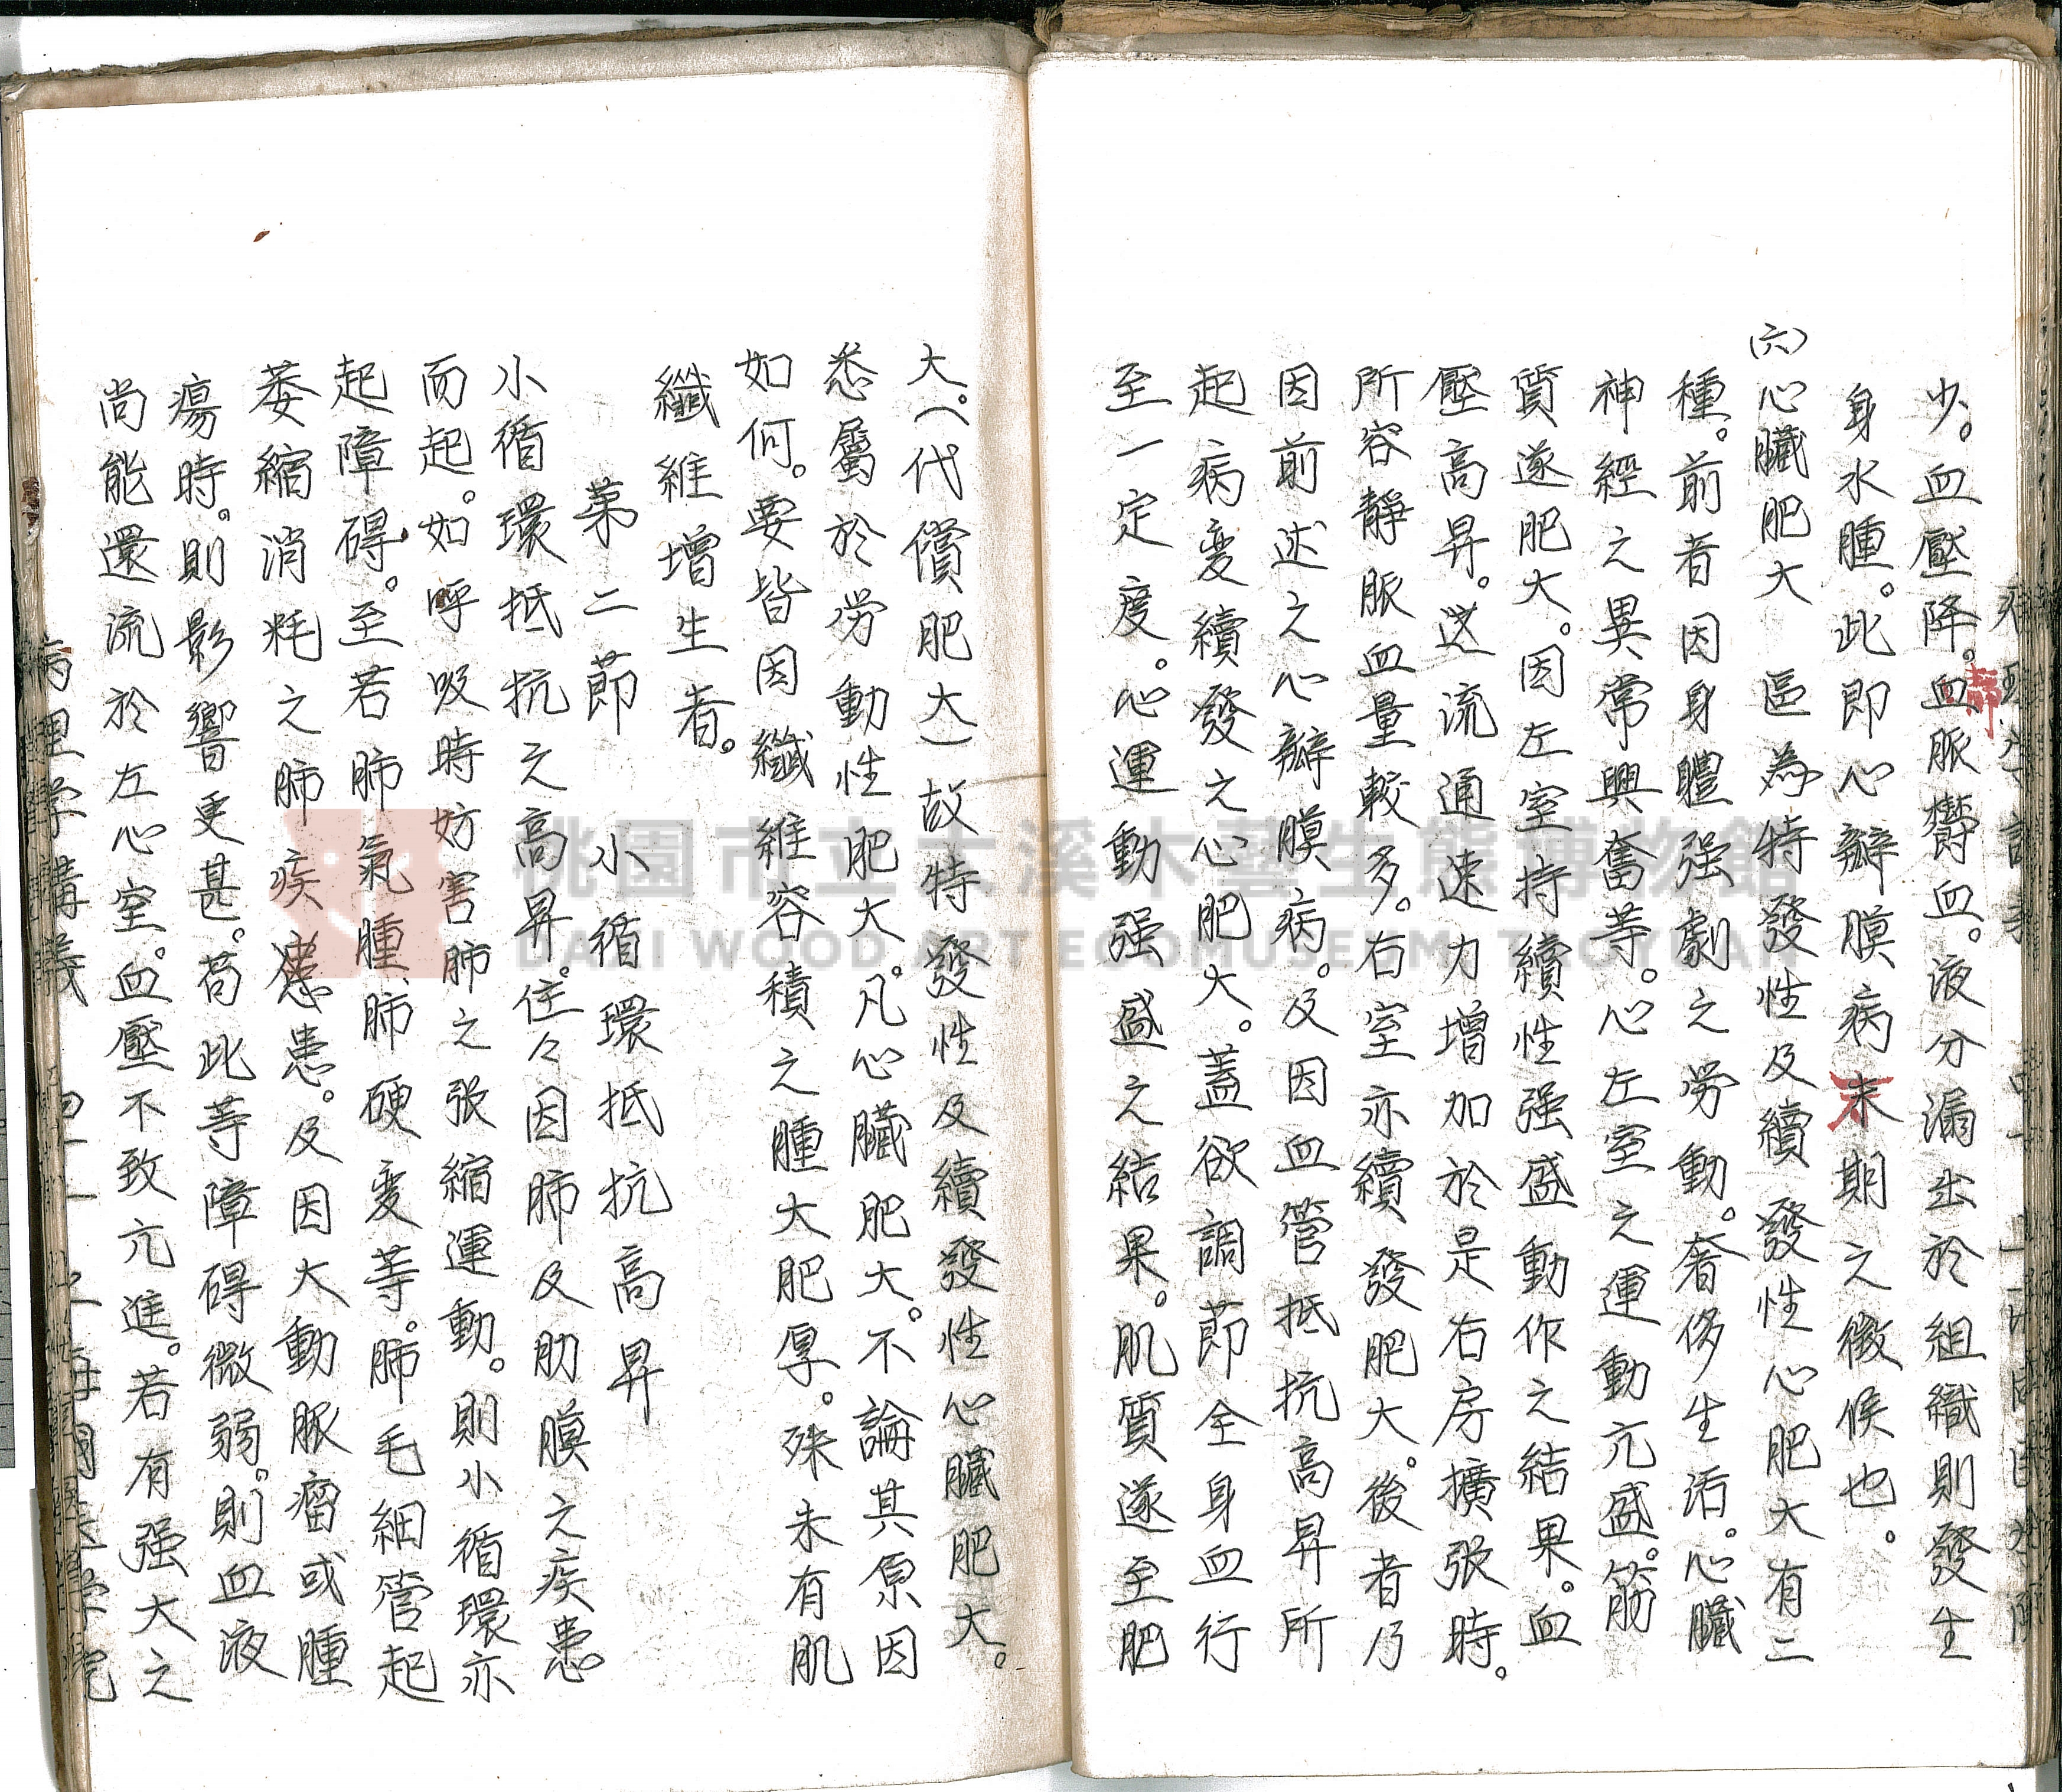 少。血壓降。血脈欝血。液分漏出於組織則發生
靜
身水腫。此即心瓣膜病末期之徵候也。
(六)心臟肥大 區為特發性及續發性心肥大有二
種。前者因身體强劇之勞動。奢侈生活。心臟
神經之異常興奮等。心左室之運動亢盛。筋
質遂肥大。因左室持續性强盛動作之結果。血
壓高昇。迸流通速力增加於是右房擴張時。
所容靜脈血量較多。右室亦續發肥大。後者乃
因前述之心瓣膜病。及因血管抵抗高昇所
起病変續發之心肥大。蓋欲調節全身血行
至一定度。心運動强盛之結果。肌質遂至肥
大。(代償肥大)故特發性及續發性心臟肥大。
悉屬於勞動性肥大。凡心臟肥大。不論其原因
如何。要皆因纖維容積之腫大肥厚。殊未有肌
纖維增生者。
第二節 小循環抵抗高昇
小循環抵抗之高昇。往々因肺及肋膜之疾患
而起。如呼吸時妨害肺之張縮運動。則小循環亦
起障碍。至若肺氣腫、肺硬变等。肺毛細管起
萎縮消耗之肺疾患。及因大動脈瘤或腫
瘍時。則影響更甚。苟此等障碍微弱。則血液
尚能還流於左心室。血壓不致亢進。若有强大之
病理学講義 四十一 上海國醫学院
桃園市立大溪木藝生態博物館
DAXI WOOD ART ECOMUSEUM, TAOYUAN